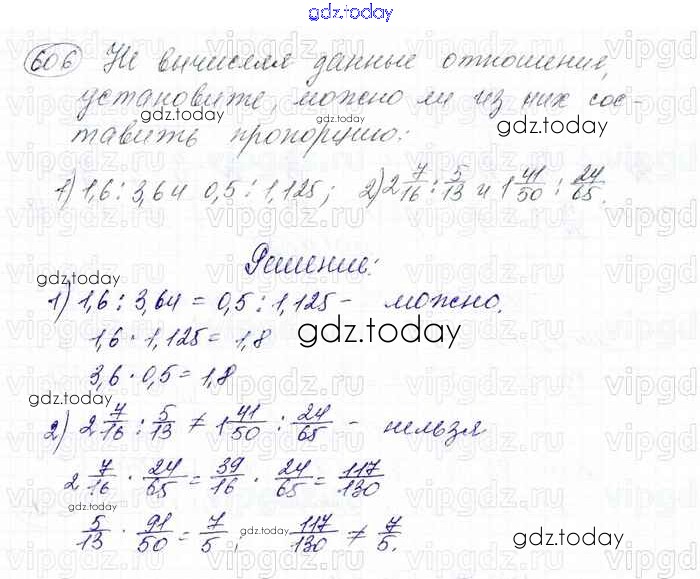 gdz.today
606 Не вычисляя данные отношение,
установите, можно ли из них сос-
gdz.today
тавить пропорцию:
gdz.today
1) 1,6 : 3,64 0,5 : 1,125; 2) 2 7/16 : 5/13 и 1 41/50 : 24/65.
Решение:
gdz.today
gdz.today
1) 1,6 : 3,64 = 0,5 : 1,125 - можно.
gdz.today
1,6 · 1,125 = 1,8
3,6 · 0,5 = 1,8
gdz.today
2) 2 7/16 : 5/13 ≠ 1 41/50 : 24/65 - нельзя
gdz.today
2 7/16 · 24/65 = 39/16 · 24/65 = 117/130
5/13 · 91/50 = 7/5, gdz.today 117/130 ≠ 7/5.
gdz.today
gdz.today